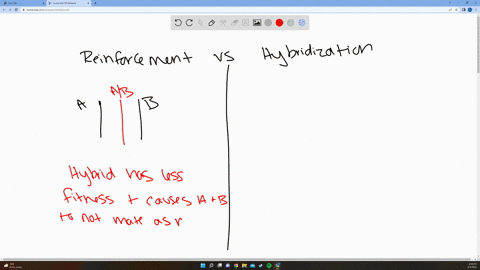 Reinforcement vs Hybridization
A/B
A B
Hybrid has less
fitness + causes A+B
to not mate as r